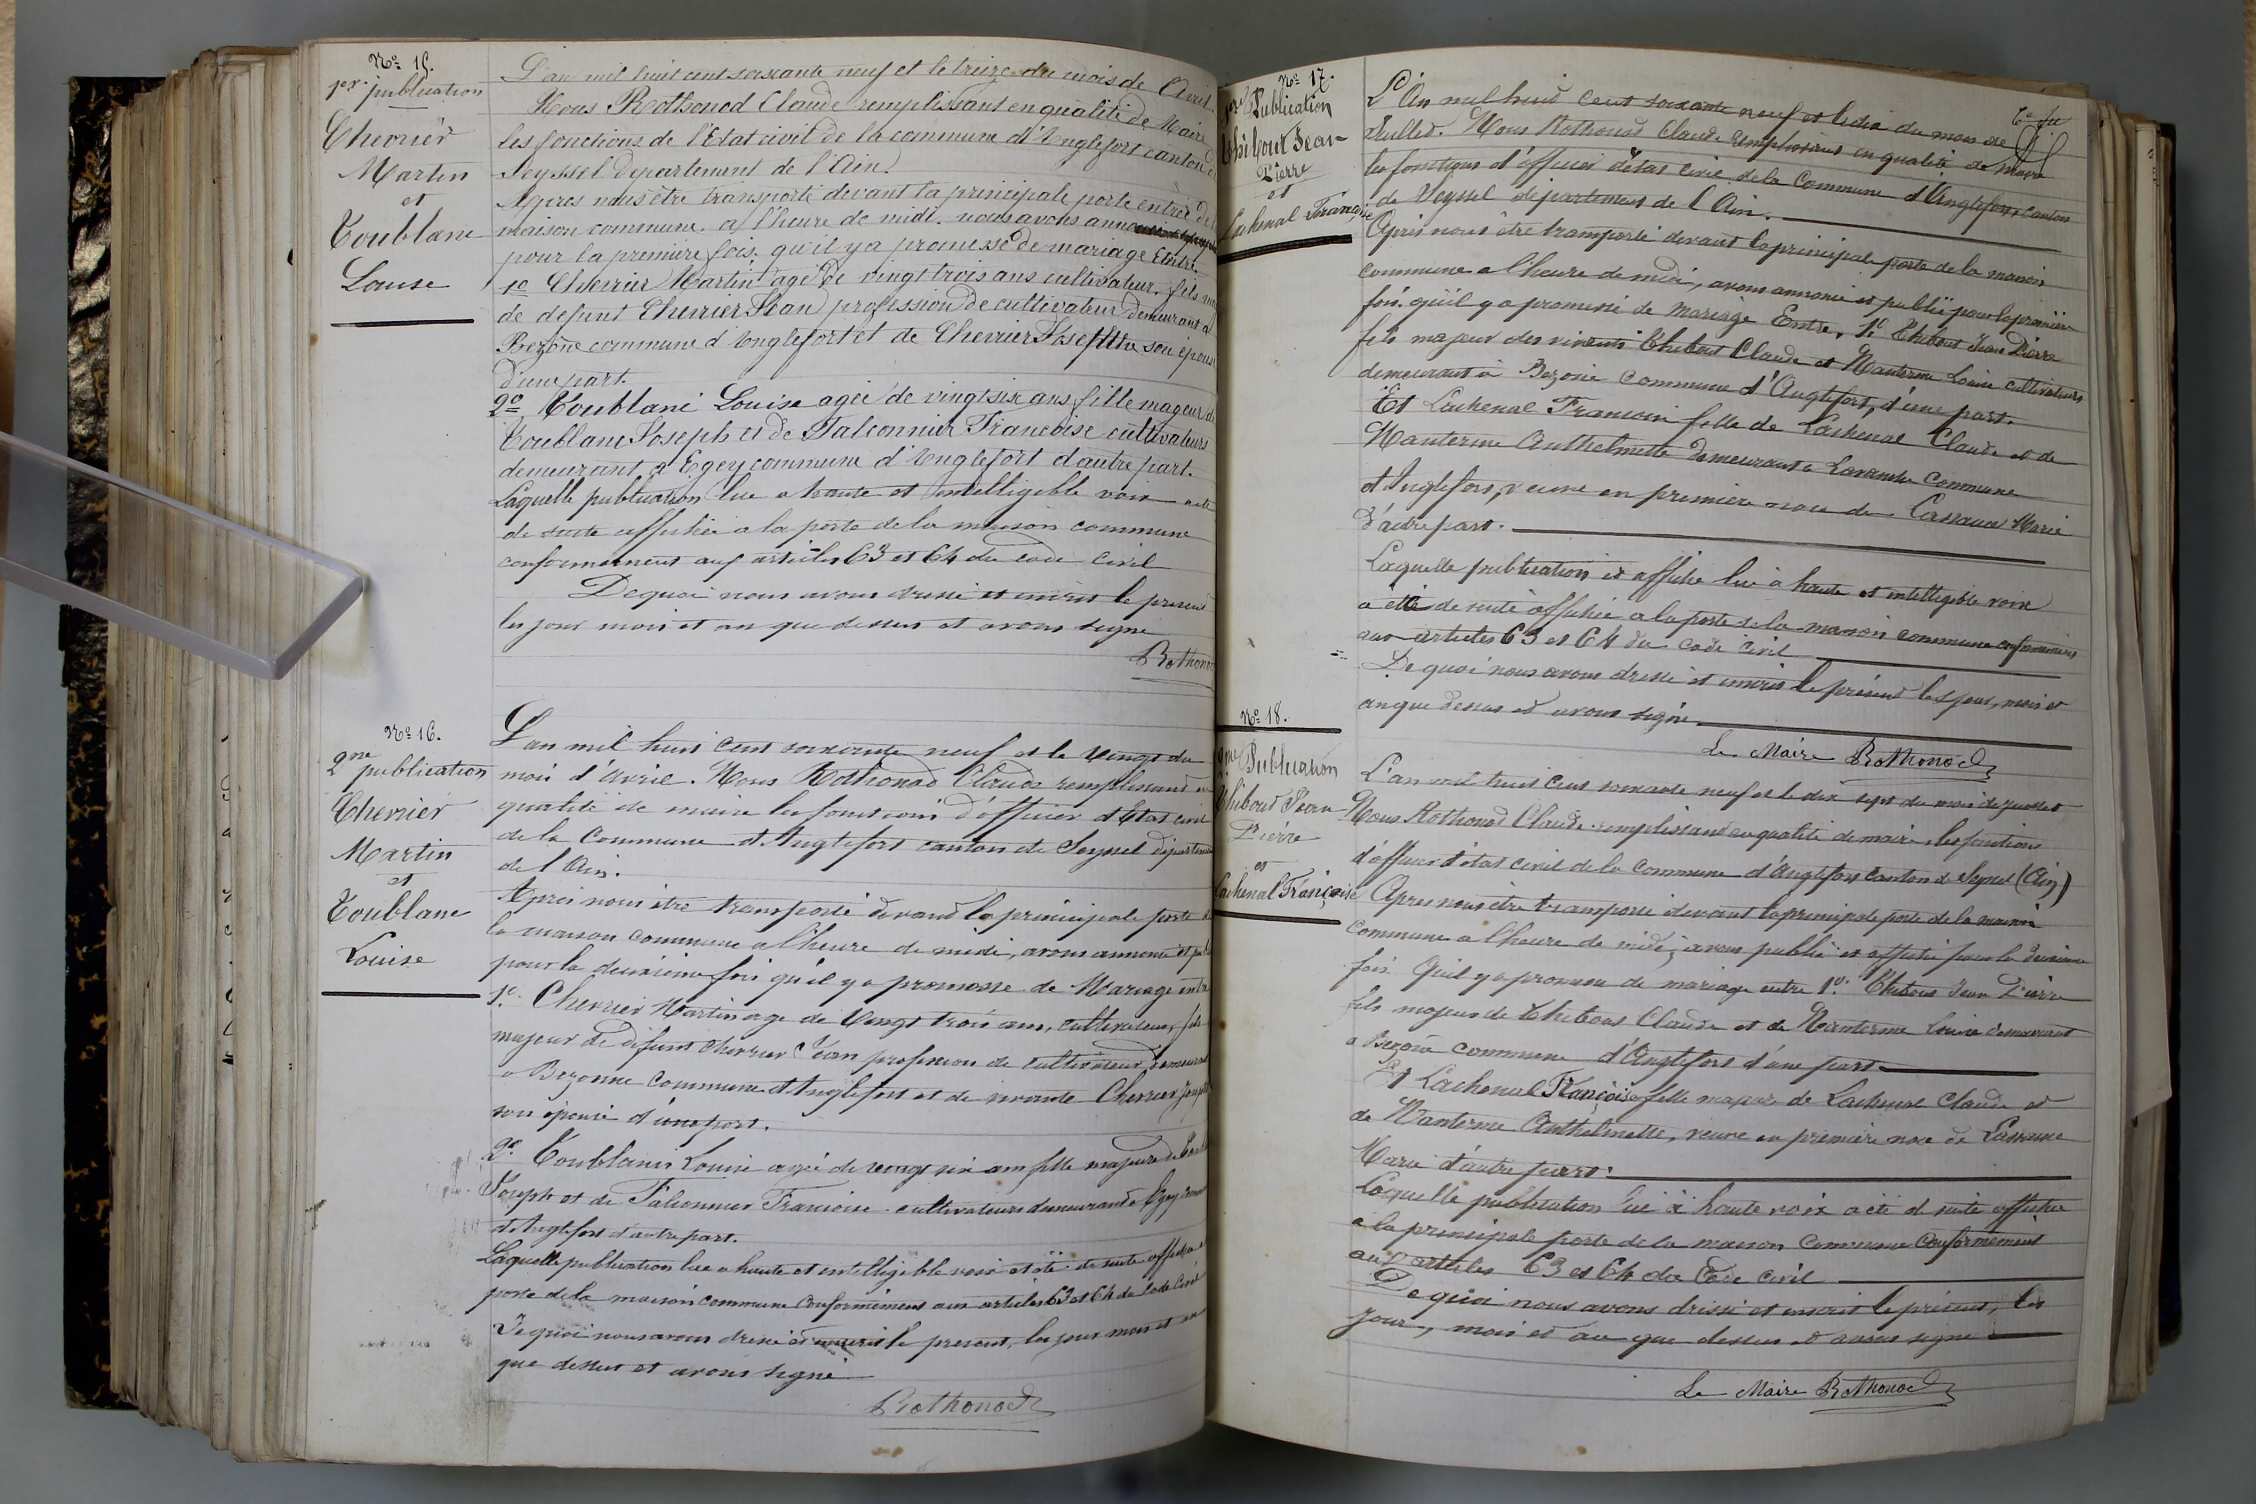 Nº 15.
1ère publication
Chevrier
Martin
et
Toublanc
Louise
L'an mil huit cent soixante neuf et le treize du mois de Avril.
Nous Rothonod Claude remplissant en qualité de Maire
les fonctions de l'Etat civil de la commune d'Anglefort canton de
Seyssel departement de l'Ain.
Apres nous être transporté devant la principale porte entrée de la
maison commune. a l'heure de midi. nous avons annoncé
pour la première fois. qu'il y a promesse de mariage Entre.
1º Cherrier Martin agé de vingt trois ans cultivateur. fils
de defunt Cherrier Jean profession de cultivateur demeurant à
Bezonne commune d'Anglefort et de Cherrier Josephte son épouse
d'une part.
2º Toublanc Louise agée de vingt six ans fille mageur de
Toublanc Joseph et de Falconnier Francoise cultivateurs
demeurant a Egey commune d'Anglefort d'autre part.
Laquelle publication lue a haute et intelligible voix a eté
de suite affichée a la porte de la maison commune
conformement aux articles 63 et 64 du code civil
De quoi nous avons dressé et inscrit le present
les jour mois et an que dessus et avons signé
Rothonod
Nº 16.
2me publication
Chevrier
Martin
et
Toublanc
Louise
L'an mil huit cent soixante neuf et le vingt du
mois d'Avril. Nous Rothonod Claude remplissant en
qualité de maire les fonctions d'officier d'Etat civil
de la Commune d'Anglefort canton de Seyssel département
de l'Ain.
Après nous être transporté devant la principale porte de
la maison commune a l'heure de midi, avons annoncé et publié
pour la deuxième fois qu'il y a promesse de Mariage entre
1º. Chevrier Martin age de vingt trois ans, cultivateur, fils
majeur de défunt Chevrier Jean profession de cultivateur demeurant
a Bezonne Commune d'Anglefort et de vivante Chevrier
son épouse d'une part.
2º. Toublanc Louise agée de vingt six ans fille majeure de
Joseph et de Falconnier Francoise cultivateurs demeurant a Egey
d'Anglefort d'autre part.
Laquelle publication lue a haute et intelligible voix et été de suite affichée
porte de la maison commune conformément aux articles 63 et 64 du Code Civil
De quoi nous avons dressé et inscrit le present, les jour mois et an
que dessus et avons signé
Rothonod
Nº 17.
1ère Publication
Thibout Jean-
Pierre
et
Lachenal Françoise
L'An mil huit cent soixante neuf et le dix du mois de
Juillet. Nous Rothonod Claude remplissant en qualité de Maire
les fonctions d'officier d'état civil de la Commune d'Anglefort, canton
de Seyssel département de l'Ain.
Après nous être transporté devant la principale porte de la maison
commune a l'heure de midi, avons annoncé et publié pour la première
fois. qu'il y a promesse de mariage Entre, 1º Thibout Jean Pierre
fils majeur des vivants Thibout Claude et Nanterme Louise cultivateurs
demeurant à Bezonne Commune d'Anglefort, d'une part.
Et Lachenal Francoise fille de Lachenal Claude et de
Nanterme Anthelmette demeurant a Lavanche Commune
d'Anglefort, veuve en première noce de Marie
d'autre part.
Laquelle publication et affiche lue à haute et intelligible voix
a été de suite affichée a la porte de la maison commune conformément
aux articles 63 et 64 du code civil
De quoi nous avons dressé et inscrit le présent les jour, mois et
an que dessus et avons signé
Le Maire Rothonod
Nº 18.
2me Publication
Thibout Jean
Pierre
et
Lachenal Françoise
L'an mil huit cent soixante neuf et le dix sept du mois de juillet
Nous Rothonod Claude remplissant en qualité de maire, les fonctions
d'officier d'état civil de la Commune d'Anglefort Canton de Seyssel (Ain)
Apres nous être transporté devant la principale porte de la maison
Commune a l'heure de midi, avons publié et affiché pour la deuxième
fois Qu'il y a promesse de mariage entre 1º. Thibout Jean Pierre
fils majeur de Thibout Claude et de Nanterme Louise demeurant
a Bezonne commune d'Anglefort d'une part
Et Lachenal Françoise fille majeure de Lachenal Claude et
de Nanterme Anthelmette, veuve en première noce de
Marie d'autre part.
Laquelle publication lue à haute voix a été de suite affichée
a la principale porte de la maison Commune Conformément
aux articles 63 et 64 du Code civil
De quoi nous avons dressé et inscrit le présent, les
jour, mois et an que dessus et avons signé
Le Maire Rothonod